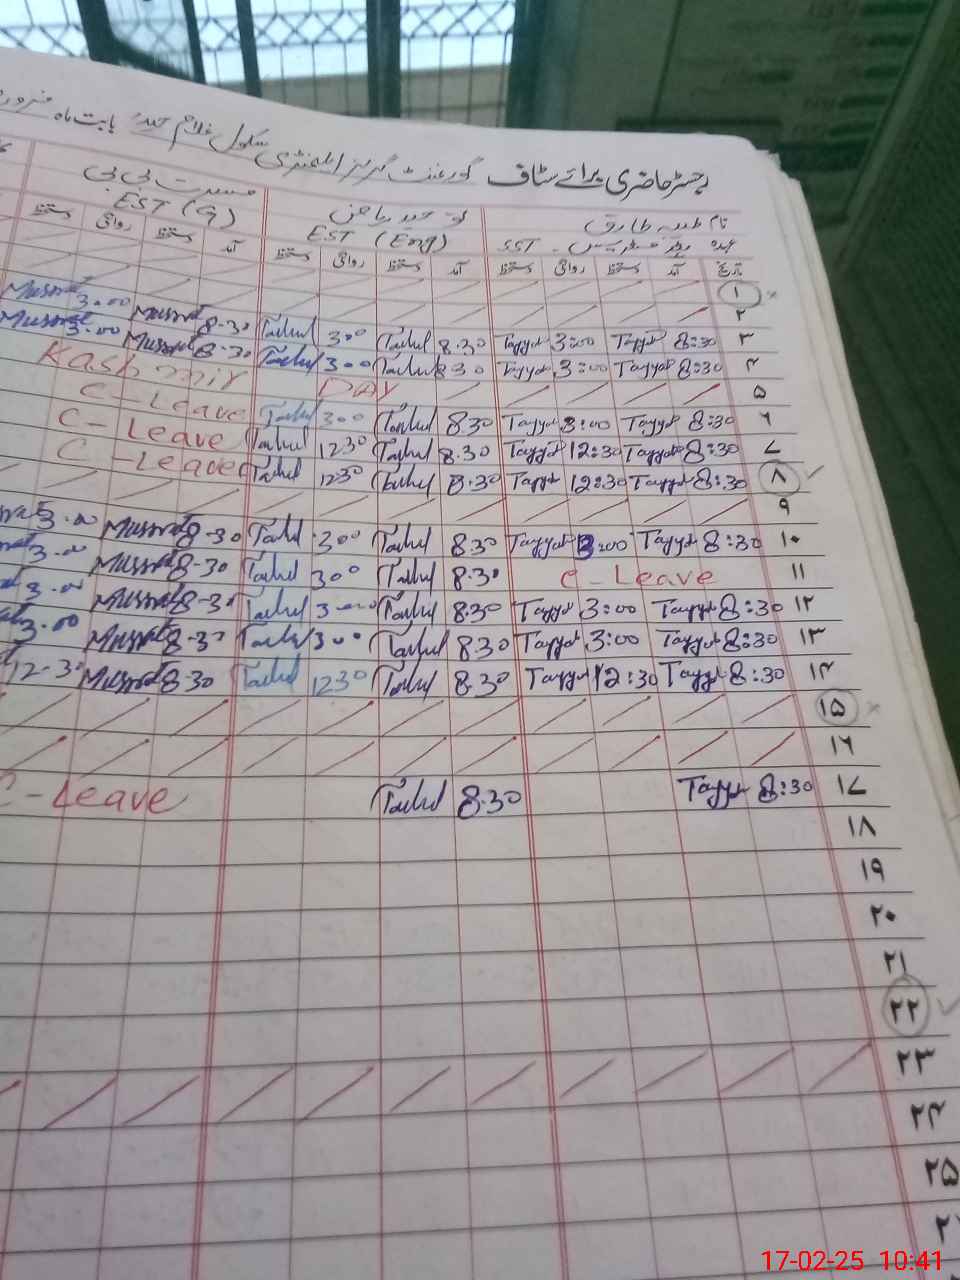 رجسٹر حاضری برائے سٹاف گورنمنٹ گرلز ایلیمنٹری سکول غلام حیدر بابت ماہ
نام طیبہ طارق توحید ریاض مسرت بی بی
عہدہ SST EST (Eng) EST (G)
تاریخ آمد دستخط روانگی دستخط آمد دستخط روانگی دستخط آمد دستخط روانگی دستخط
۱
۲
۳ 8:30 Tayyab 3:00 Tayyab 8.30 Tauhid 300 Tauhid 8-30 Mussrat 3.00 Mussrat
۴ 8:30 Tayyab 3:00 Tayyab 830 Tauhid 300 Tauhid 8-30 Mussrat 3.00 Mussrat
۵ Kashmir DAY
۶ 8:30 Tayyab 3:00 Tayyab 830 Tauhid 300 Tauhid C-Leave
۷ 8:30 Tayyab 12:30 Tayyab 8.30 Tauhid 1230 Tauhid C-Leave
۸ 8:30 Tayyab 12:30 Tayyab 8.30 Tauhid 1230 Tauhid C-Leave
۹
۱۰ 8:30 Tayyab 3:00 Tayyab 830 Tauhid 300 Tauhid 8-30 Mussrat 3.00
۱۱ C-Leave 8.30 Tauhid 300 Tauhid 8-30 Mussrat 3.00
۱۲ 8:30 Tayyab 3:00 Tayyab 8.30 Tauhid 300 Tauhid 8-30 Mussrat 3.00
۱۳ 8:30 Tayyab 3:00 Tayyab 830 Tauhid 300 Tauhid 8-30 Mussrat 3.00
۱۴ 8:30 Tayyab 12:30 Tayyab 8.30 Tauhid 1230 Tauhid 8-30 Mussrat 12-30
۱۵
۱۶
۱۷ 8:30 Tayyab 8.30 Tauhid C-Leave
۱۸
۱۹
۲۰
۲۱
۲۲
۲۳
۲۴
۲۵
17-02-25 10:41